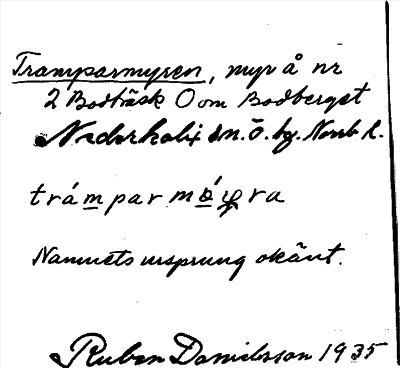 Tramparmyren, myr å nr
2 Bodträsk O om Bodberget
Nederkalix sn. ö. by. Norrb l.
trámpar
Namnets ursprung okänt.
Ruben Danielsson 1935